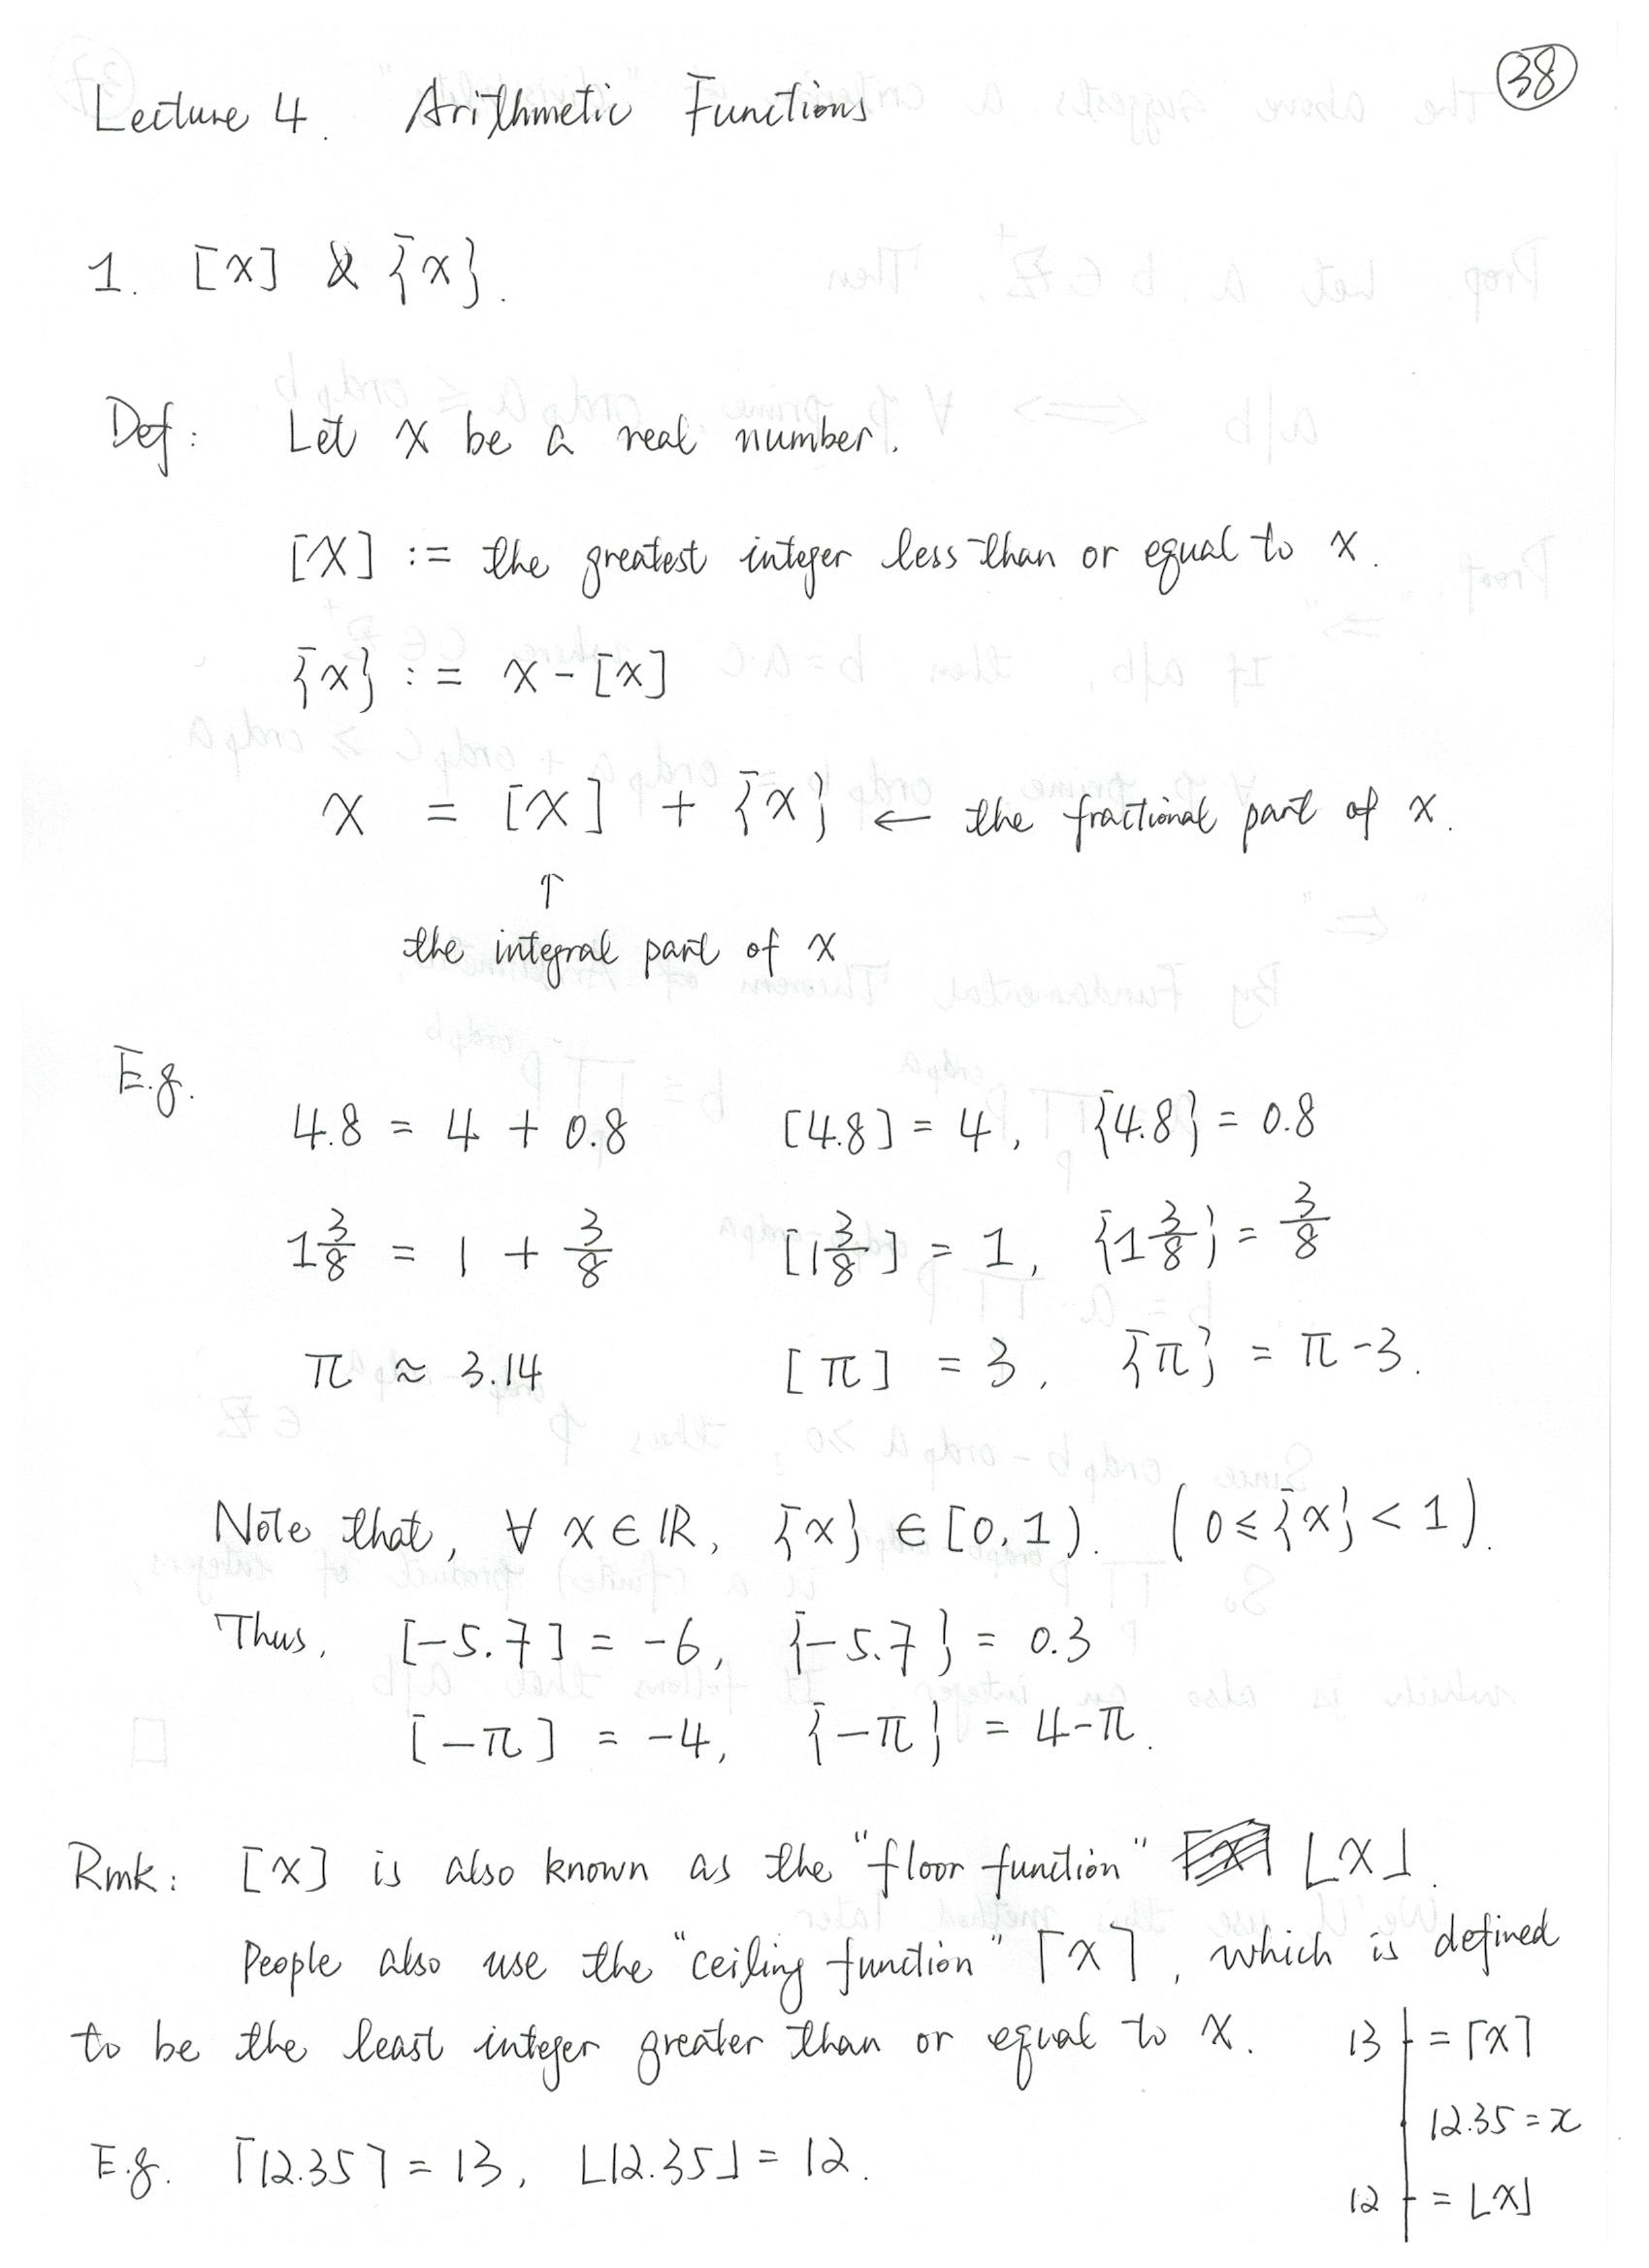 38
Lecture 4. Arithmetic Functions
1. [x] & {x}.
Def: Let x be a real number.
[x] := the greatest integer less than or equal to x.
{x} := x - [x]
x = [x] + {x} ← the fractional part of x.
↑
the integral part of x
E.g.
4.8 = 4 + 0.8 [4.8] = 4, {4.8} = 0.8
1 3/8 = 1 + 3/8 [1 3/8] = 1, {1 3/8} = 3/8
π ≈ 3.14 [π] = 3, {π} = π - 3.
Note that, ∀ x ∈ ℝ, {x} ∈ [0, 1). (0 ≤ {x} < 1).
Thus, [-5.7] = -6, {-5.7} = 0.3
[-π] = -4, {-π} = 4-π.
Rmk: [x] is also known as the "floor function" ⌊x⌋.
People also use the "ceiling function" ⌈x⌉, which is defined
to be the least integer greater than or equal to x.
13 = ⌈x⌉
12.35 = x
12 = ⌊x⌋
E.g. ⌈12.35⌉ = 13, ⌊12.35⌋ = 12.